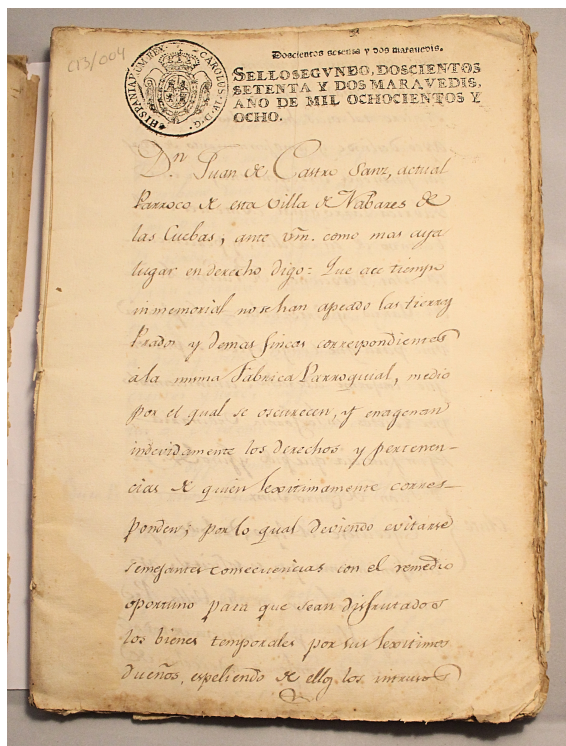 C13/004
HISPANIARUM REX. CAROLUS IV D.G.
Doscientos setenta y dos maravedis.
SELLO SEGVNDO, DOSCIENTOS
SETENTA Y DOS MARAVEDIS,
AÑO DE MIL OCHOCIENTOS Y
OCHO.
Dn Juan de Castro Sanz, actual
Parroco de esta Villa de Nabares de
las Cuebas, ante vm. como mas aya
lugar en derecho digo: Que ace tiempo
inmemorial no se han apeado las tierras
Prados y demas fincas correspondientes
á la misma Fabrica Parroquial, medio
por el qual se oscurecen, y enagenan
indevidamente los derechos y pertenen-
cias de quien lexitimamente corres-
ponden; por lo qual deviendo evitarse
semejantes consecuencias con el remedio
oportuno para que sean disfrutados
los bienes temporales por sus lexitimos
dueños, espeliendo de ellos los intrusos